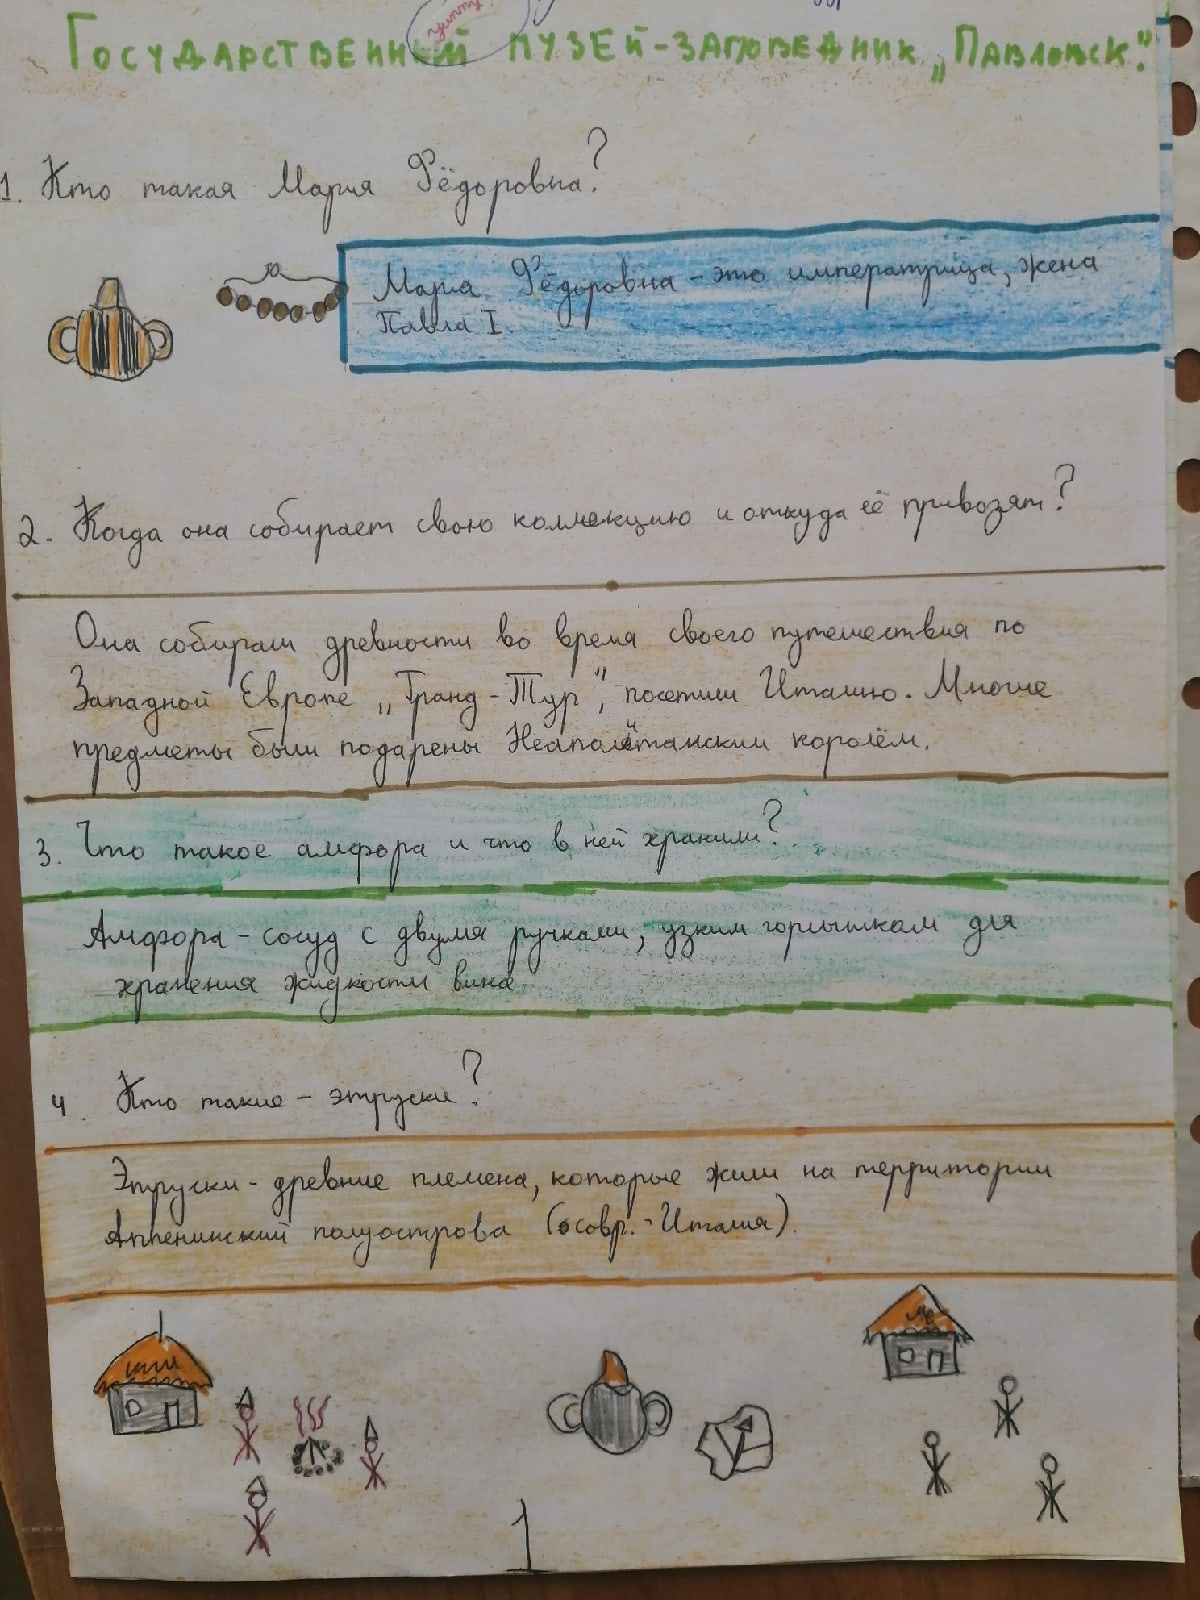 yummy!
Государственный музей-заповедник „Павловск".
1. Кто такая Мария Фёдоровна?
Мария Фёдоровна - это императрица, жена
Павла I.
2. Когда она собирает свою коллекцию и откуда её привозят?
Она собирали древности во время своего путешествия по
Западной Европе „Гранд-Тур", посетили Италию. Многие
предметы были подарены Неаполитанским королём.
3. Что такое амфора и что в ней хранили?
Амфора - сосуд с двумя ручками, узким горлышком для
хранения жидкости вина
4. Кто такие - этруски?
Этруски - древние племена, которые жили на территории
Аппенинский полуострова (совр. - Италия).
1